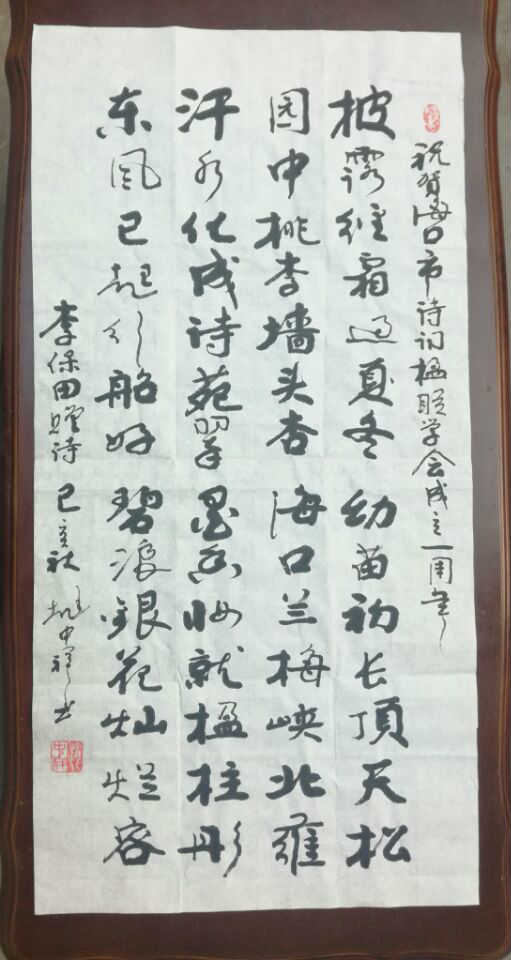 祝贺海口市诗词楹联学会成立一周年
披露经霜过夏冬幼苗初长顶天松
园中桃李墙头杏海口兰梅峡北雍
汗水化成诗苑翠墨香妆就楹柱彤
东风已起行船好碧浪银花灿烂容
李保田赠诗 己亥秋 中祥书